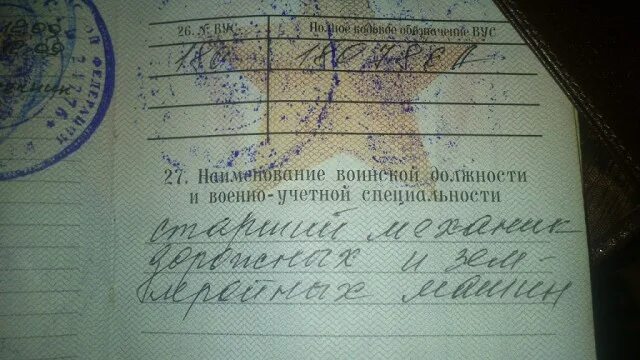 26. № ВУС. Полное кодовое обозначение ВУС
180 180786А
27. Наименование воинской должности
и военно-учетной специальности
старший механик
дорожных и зем-
леройных машин